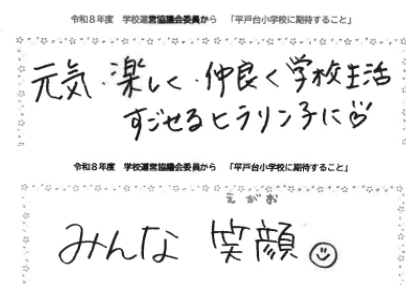 令和8年度 学校運営協議会委員から 「平戸台小学校に期待すること」
元気・楽しく・仲良く学校生活
すごせるヒラリン子に
令和8年度 学校運営協議会委員から 「平戸台小学校に期待すること」
えがお
みんな 笑顔